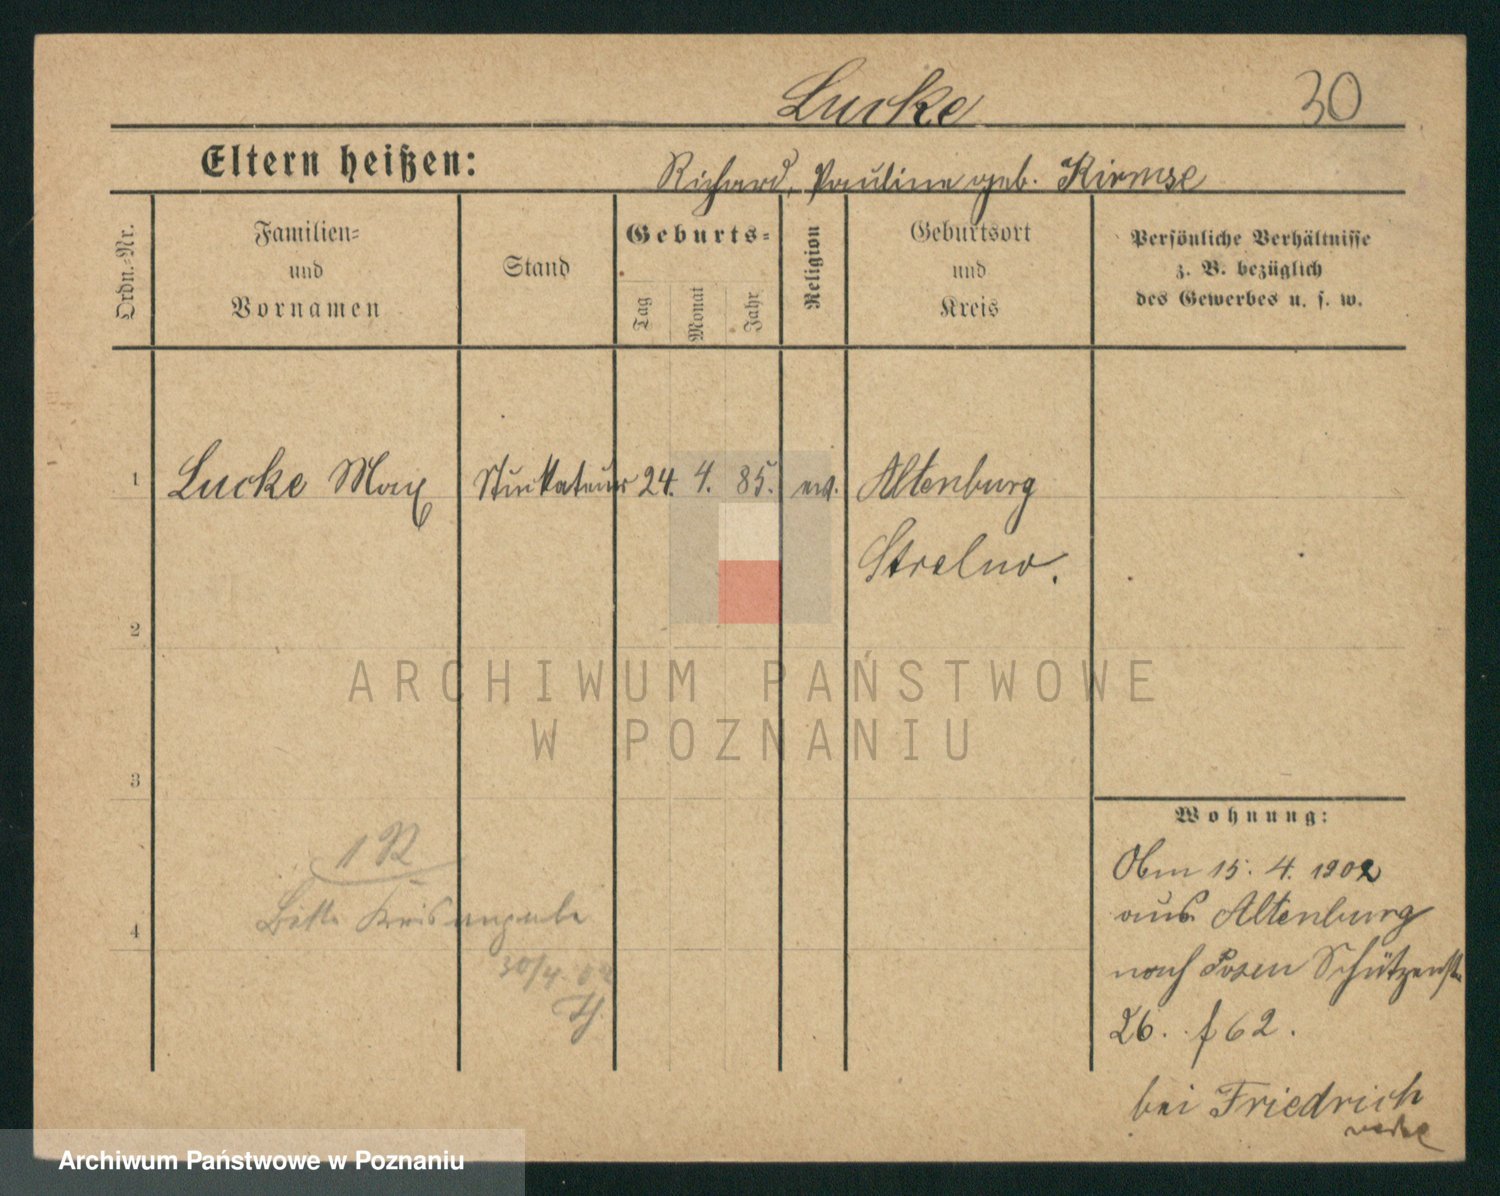 Lucke 30
Eltern heißen: Richard, Pauline geb. Kirmse
Ordn.-Nr.
Familien-
und
Vornamen
Stand
Geburts-
Tag
Monat
Jahr
Religion
Geburtsort
und
Kreis
Persönliche Verhältnisse
z. B. bezüglich
des Gewerbes u. s. w.
1 Lucke Max Stukkateur 24. 4. 85. ev. Altenburg
Strelno.
2
ARCHIWUM PAŃSTWOWE
W POZNANIU
3
Wohnung:
1 R
Bitte Kreisangabe
30/4. 02
4
15. 4. 1902
aus Altenburg
nach Posen Schützenstr.
26. f 62.
bei Friedrich
Archiwum Państwowe w Poznaniu